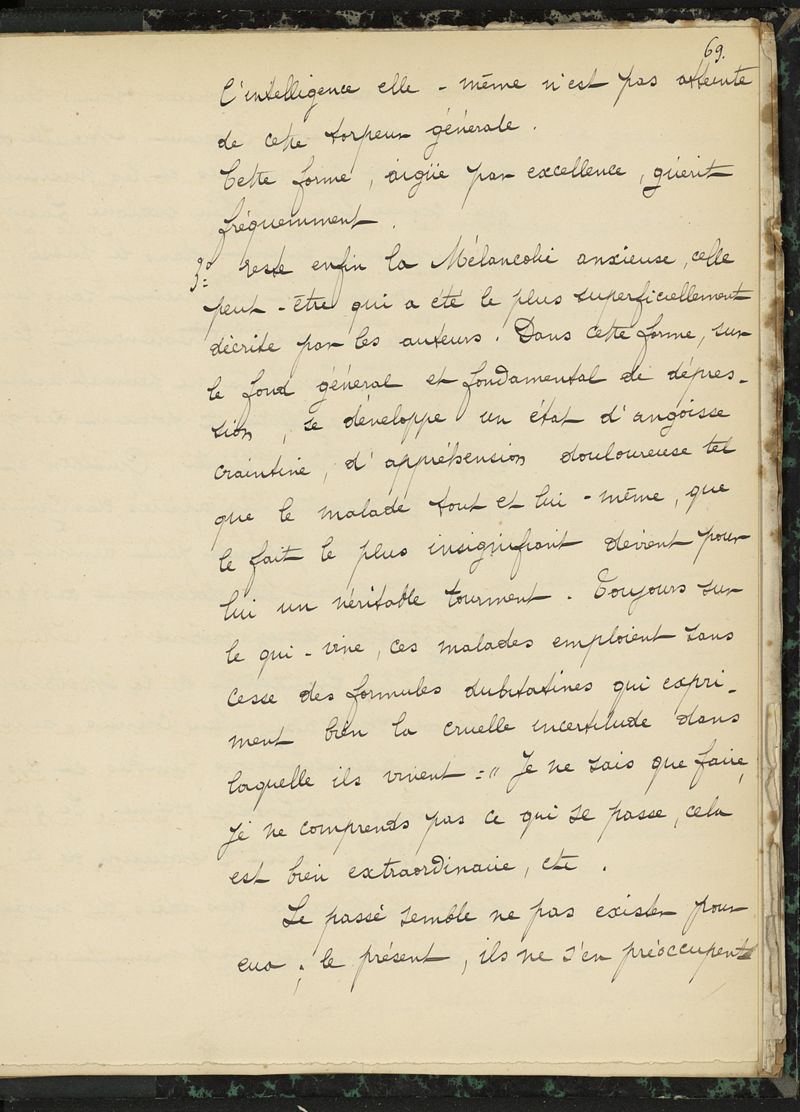 69.
L'intelligence elle-même n'est pas atteinte
de cette torpeur générale.
Cette forme, aigüe par excellence, guérit
fréquemment.
3° reste enfin la Mélancolie anxieuse, celle
peut-être qui a été le plus superficiellement
décrite par les auteurs. Dans cette forme, sur
le fond général et fondamental de dépres-
sion, se développe un état d'angoisse
craintive, d'appréhension douloureuse tel
que le malade tout et lui-même, que
le fait le plus insignifiant devient pour
lui un véritable tourment. Toujours sur
le qui-vive, ces malades emploient sans
cesse des formules dubitatives qui expri-
ment bien la cruelle incertitude dans
laquelle ils vivent = " Je ne sais que faire,
je ne comprends pas ce qui se passe, cela
est bien extraordinaire, etc.
Le passé semble ne pas exister pour
eux ; le présent, ils ne s'en préoccupent